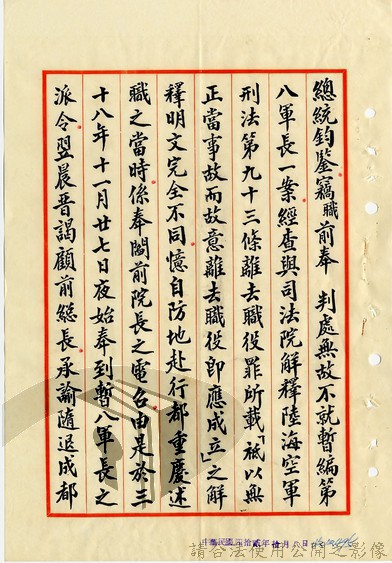 總統鈞鑒竊職前奉 判處無故不就暫編第
八軍長一案經查與司法院解釋陸海空軍
刑法第九十三條離去職役罪所載「祇以無
正當事故而故意離去職役即應成立」之解
釋明文完全不同憶自防地赴行都重慶述
職之當時係奉閻前院長之電召由是於三
十八年十一月廿七日夜始奉到暫八軍長之
派令翌晨晋謁顧前總長承諭隨退成都
中華民國四拾貳年 月 日
請合法使用公開之影像